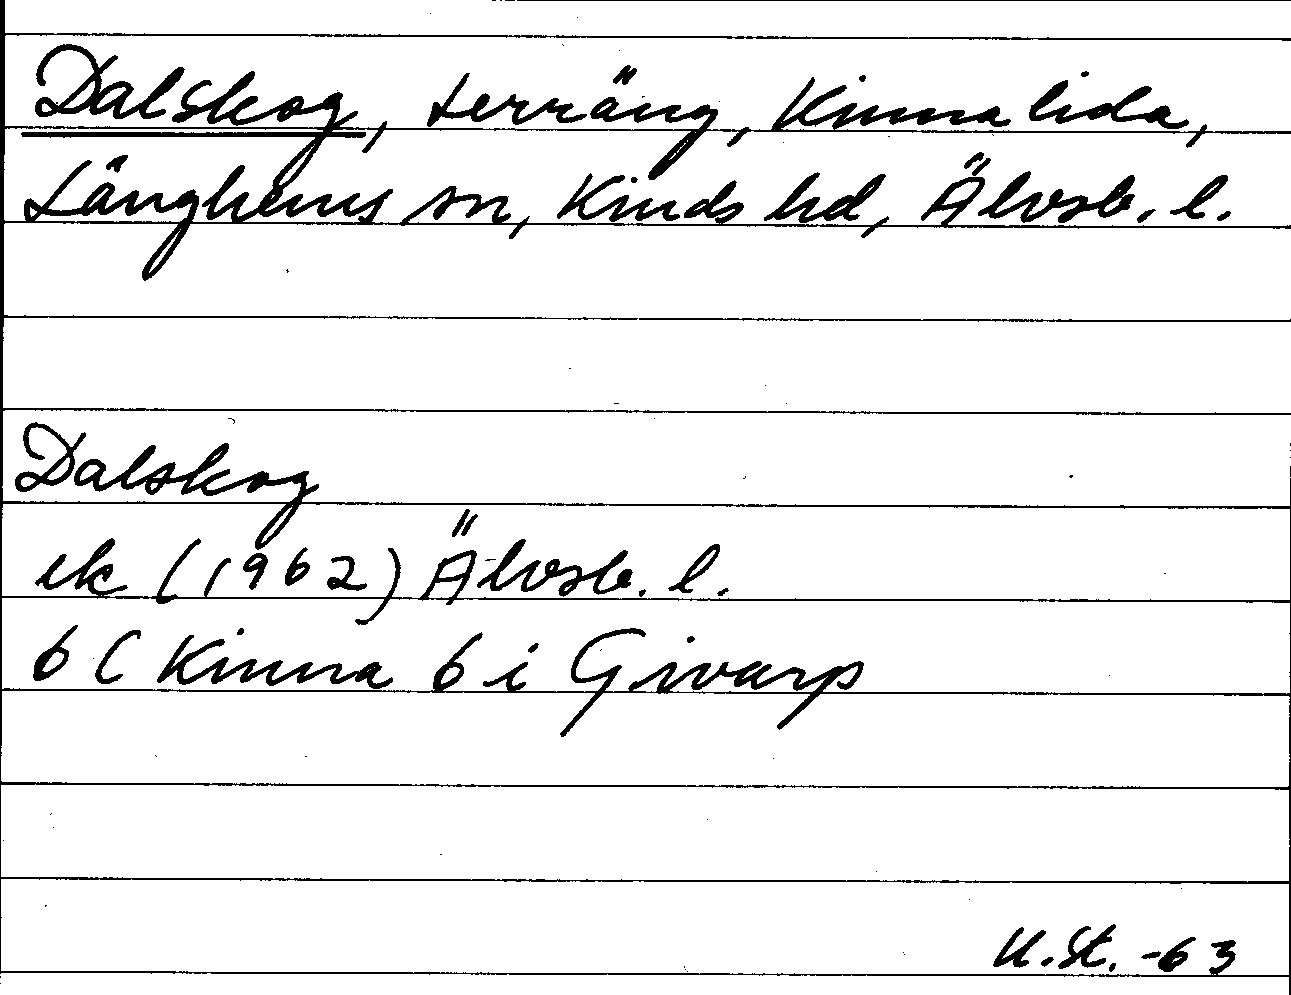 Dalskog, terräng, Kinnalida,
Länghems sn, Kinds hd, Älvsb. l.
Dalskog
ek (1962) Älvsb. l.
6 C Kinna 6 i Givarp
U.St. -63